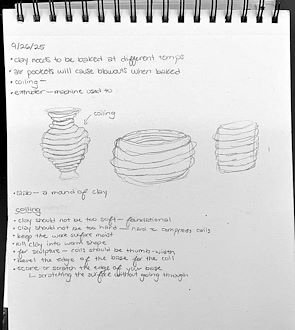 9/26/25
• clay needs to be baked at different temps
• air pockets will cause blowouts when baked
• coiling –
• extruder – machine used to
coiling
• slab – a mound of clay
coiling
• clay should not be too soft – foundational
• clay should not be too hard – hard to compress coils
• keep the work surface moist
• roll clay into worm shape
• for sculpture – coils should be thumb-width
• level the edge of the base for the coil
• score or scratch the edge of your base
↳ scratching the surface without going through